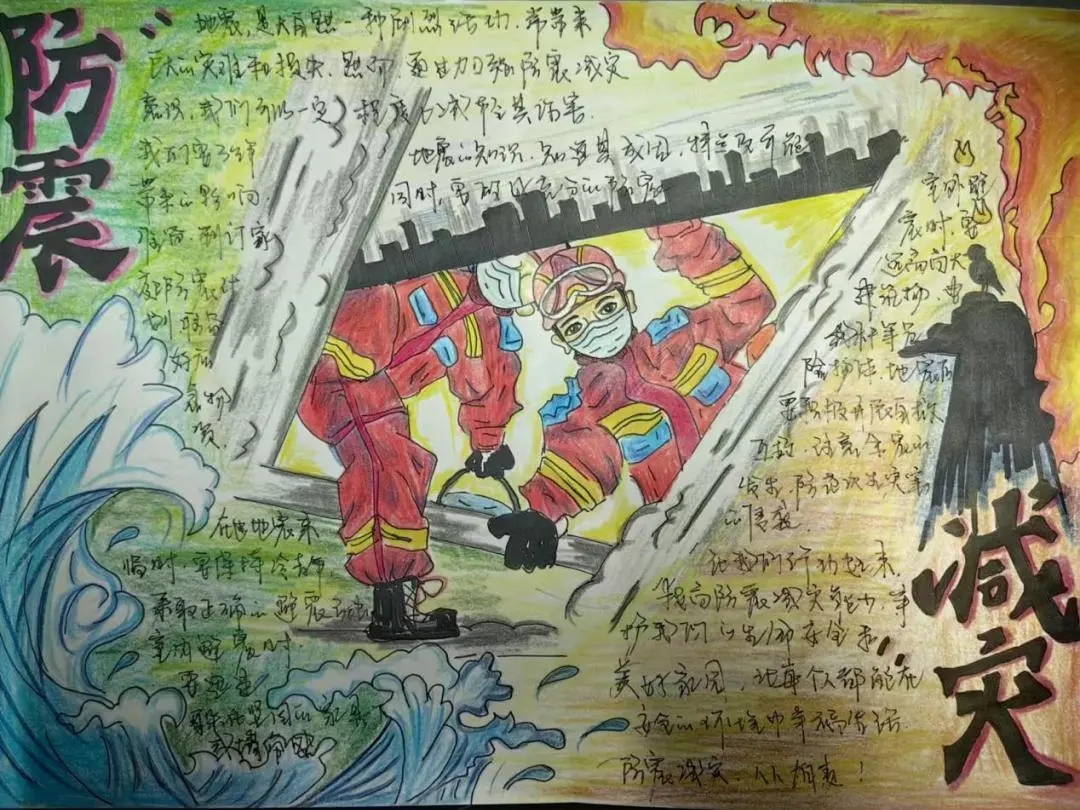 防震
减灾
地震，是大自然一种剧烈活动，常带来
巨大的灾难和损失，然而，通过力口强防震减灾
意识，我们可以一定程度上减轻其伤害。
我们要了解地震的知识，知道其成因，特点及可能
带来的影响，同时，要的做充分的防灾
准备，制订家
庭防震计
划，准备
好应
急物
资。
在地震来
临时，要保持冷静
采取正确的避震方法
室内避震时，
要迅速
躲在坚固的家具
室外避
震时，要
远离高大
建筑物，电
线杆等危
险物体，地震后
要积极开展自救
互救，注意余震的
发生，防范次生灾害
的
让我们行动起来
提高防震减灾能力，守
护我们的生命安全和
美好家园，让每个人都能在
安全的环境中幸福生活
防震减灾，人人有责！